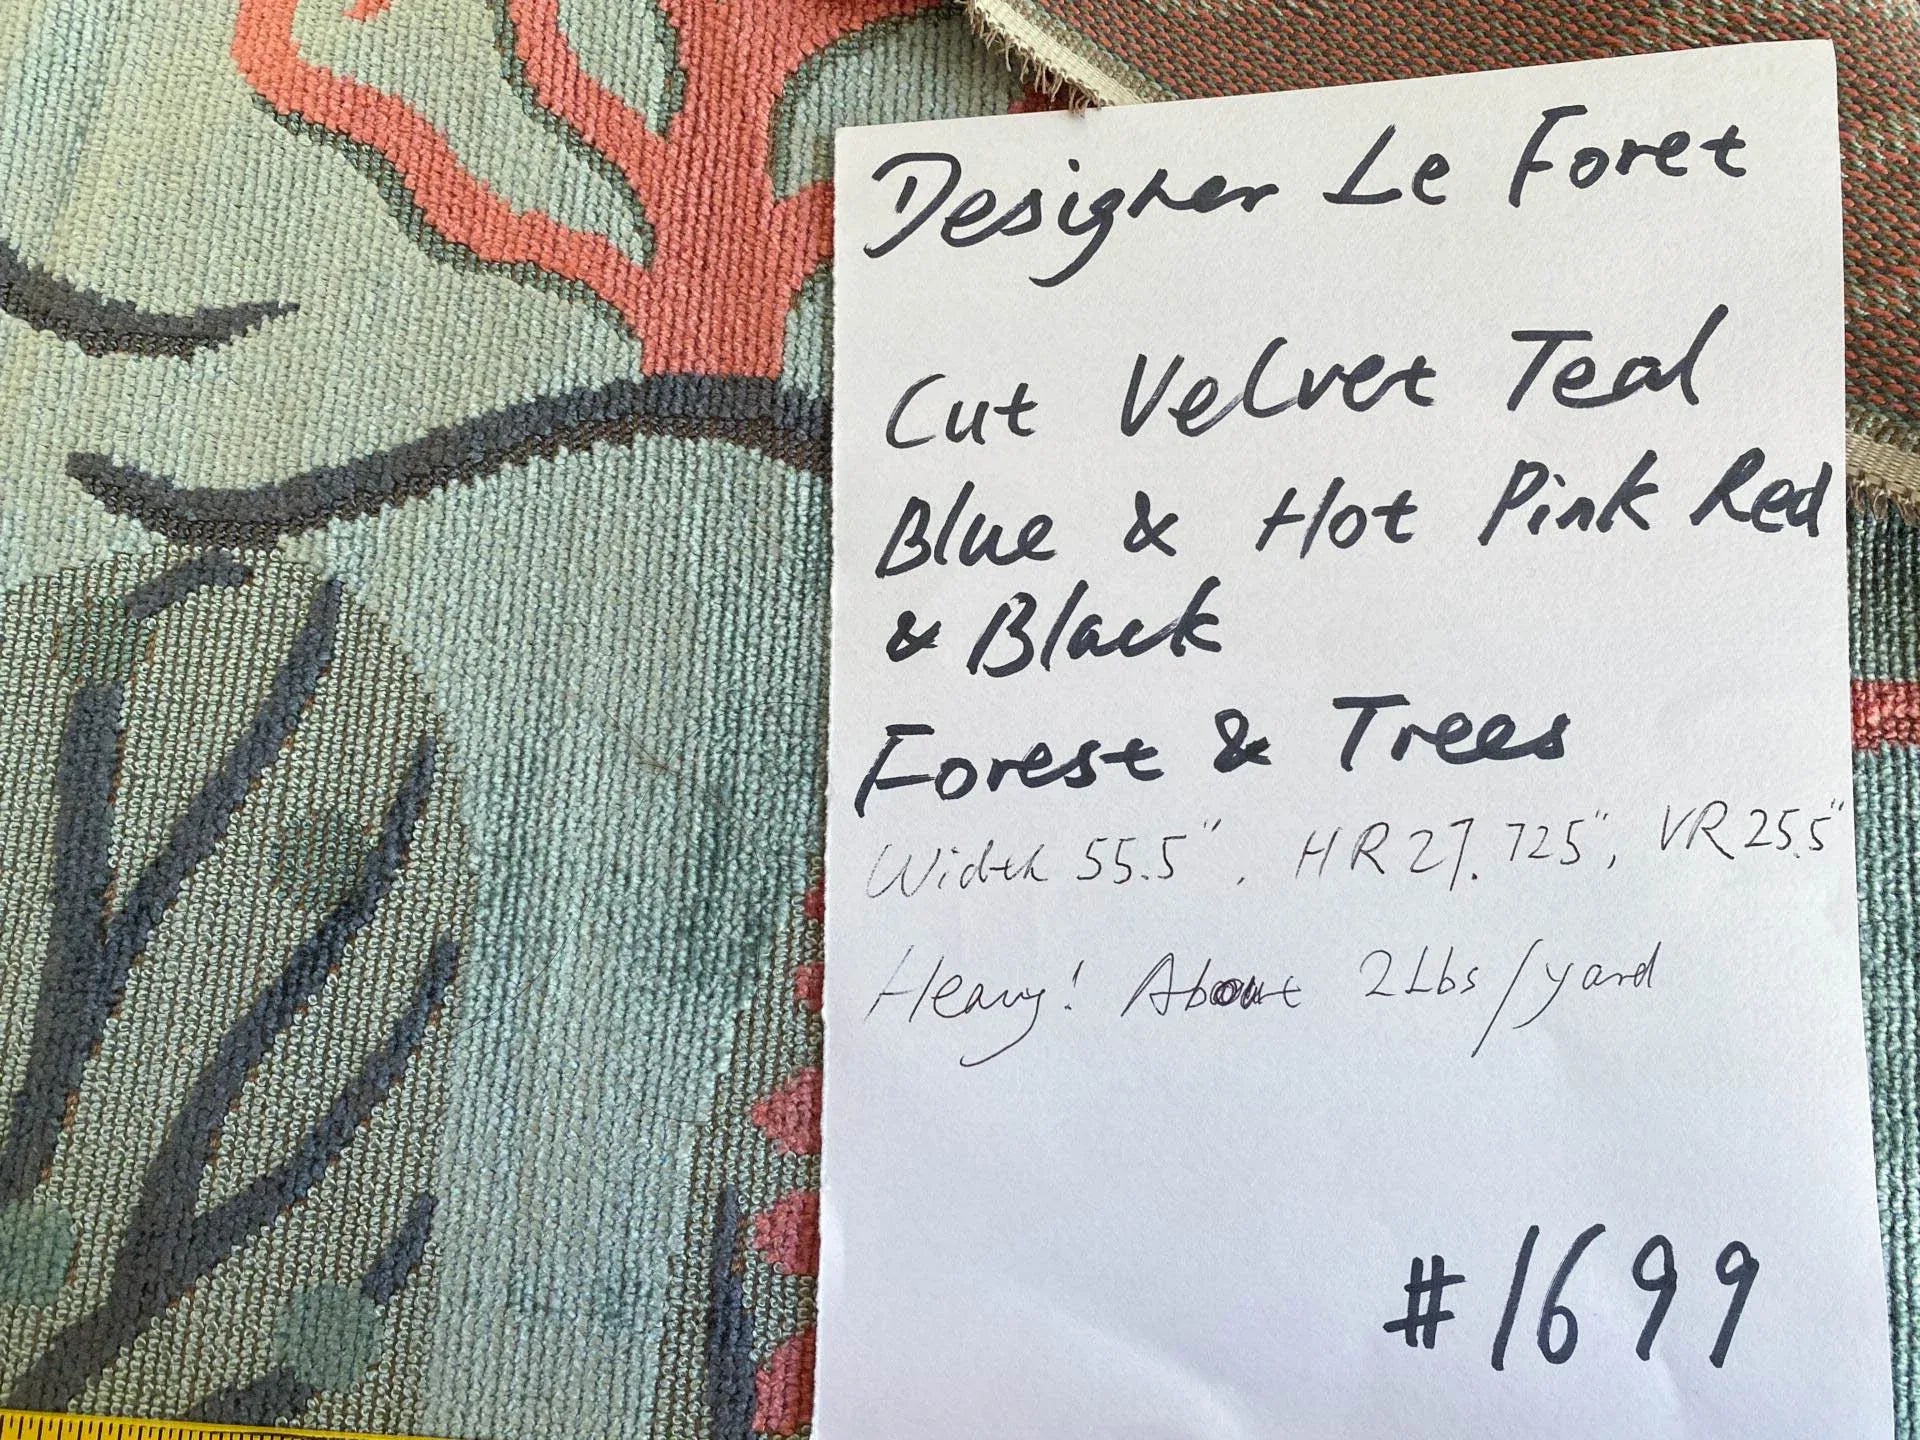 Designer Le Foret
Cut Velvet Teal
Blue & Hot Pink Red
& Black
Forest & Trees
Width 55.5", HR 27.725", VR 25.5"
Heavy! About 2 Lbs/yard
#1699